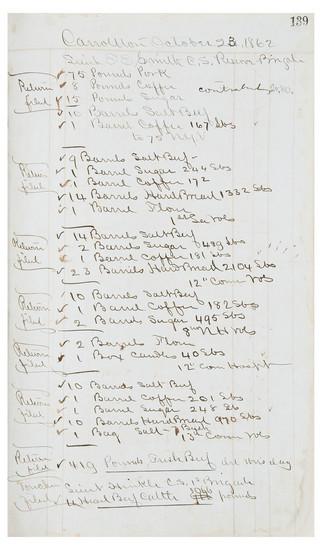 139
Carrollton October 23, 1862
Lieut Smith C.S. Reserv Brigade
75 Pounds Pork
Return filed
8 Pounds Coffee
15 Pounds Sugar
10 Barrels Salt Beef
1 Barrel Coffee 167 lbs
to 75 N.Y.
9 Barrels Salt Beef
Return filed
1 Barrel Sugar 244 lbs
1 Barrel Coffee 172
14 Barrels Hard Bread 1332 lbs
1 Barrel Flour
1st La Vols
14 Barrels Salt Beef
Return filed
2 Barrels Sugar 489 lbs
1 Barrel Coffee 181 lbs
23 Barrels Hard Bread 2104 lbs
12" Conn Vols
10 Barrels Salt Beef
Return filed
1 Barrel Coffee 182 lbs
2 Barrels Sugar 495 lbs
8" NH Vols
Return filed
2 Barrels Flour
1 Box Candles 40 lbs
12" Conn Hospt
10 Barrels Salt Beef
Return filed
1 Barrel Coffee 201 lbs
1 Barrel Sugar 248 lb
10 Barrels Hard Bread 970 lbs
1 Bag Salt
13" Conn Vols
Return filed
419 Pounds Fresh Beef del this day
Lieut Hinkle C.S. 1st Brigade
4 Head Beef Cattle pounds